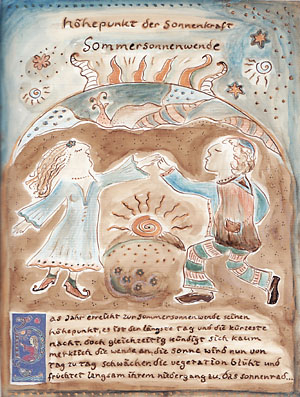 höhepunkt der Sonnenkraft
Sommersonnenwende
Das Jahr erreicht zur Sommersonnenwende seinen
höhepunkt, es ist der längste tag und die kürzeste
nacht. doch gleichzeitig kündigt sich kaum
merklich die wende an, die sonne wird nun von
tag zu tag schwächer, die vegetation blüht und
früchtet langsam ihrem niedergang zu. das sonnenrad...